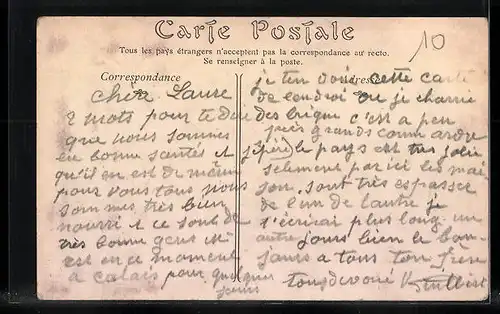 Carte Postale
Tous les pays étrangers n'acceptent pas la correspondance au recto.
Se renseigner à la poste.
10
Correspondance
Chère Laure
2 mots pour te dire
que nous sommes
en bonne santés et
qu'il en est de même
pour vous tous nous
sommes très bien
nourri et ce sont de
très bonne gens
est en ce moment
a calais pour quelque
jours
Adresse
je ten voie cette carte
de lendroi ou je charrie
des brique c'est a peu
près grands comme ardre
le pays est très jolie
seulement par ici les mai
son sont très espasser
de l'un de l'autre je
t'écrirai plus long un
autre jours bien le bon
jours a tous ton frère
tous devoué